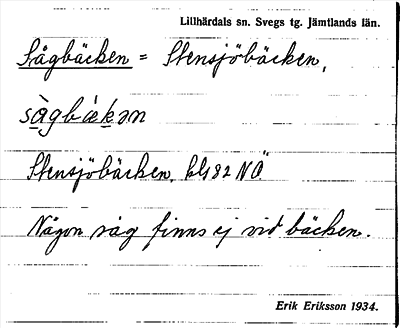 Lillhärdals sn. Svegs tg. Jämtlands län.
Sågbäcken = Stensjöbäcken,
sågbækən
Stensjöbäcken, bl 82 NÖ
Någon såg finns ej vid bäcken.
Erik Eriksson 1934.